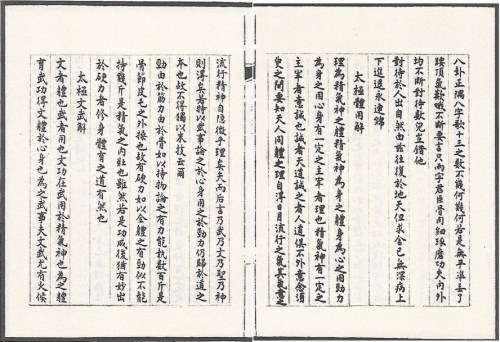 八卦正隅八字歌十三之數不幾何幾何若是無平準丢了
腰頂氣歎哦不斷要言只兩字君臣骨肉細琢磨功夫內外
均不斷對待數兒豈錯他
對待於人出自然由茲往復於地天但求舍己無深病上
下進退永連綿
太極體用解
理為精氣神之體精氣神為身之體身為心之用勁力
為身之用心身有一定之主宰者理也精氣神有一定之
主宰者意誠也誠者天道誠之者人道俱不外意念須
臾之間要知天人同體之理自得日月流行之氣其氣意之
流行精神自隱微乎理矣夫而后言乃武乃文乃聖乃神
則得矣若特以武事論之於心身用之於勁力仍歸於道之
本也故不得獨以末技云爾
勁由於筋力由於骨如以持物論之有力能執數百斤是
骨節皮毛之外操也故有硬力如以全體之有勁似不能
持幾斤是精氣之內壯也雖然若是功成後猶有妙出
於硬力者修身體育之道有然也
太極文武解
文者體也武者用也文功在武用於精氣神也為之體
育武功得文體於心身也為之武事夫文武尤有火候